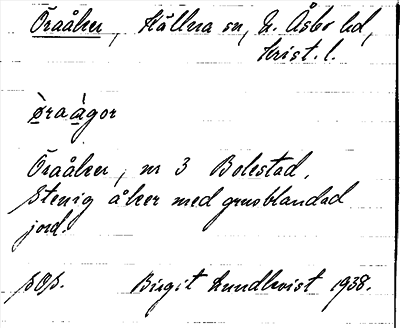 Öraåker, Källna sn, N. Åsbo hd,
Krist. l.
ø̀raàgor
Öraåker, nr 3 Bolestad.
Stenig åker med grusblandad
jord.
Birgit Lundkvist 1938.